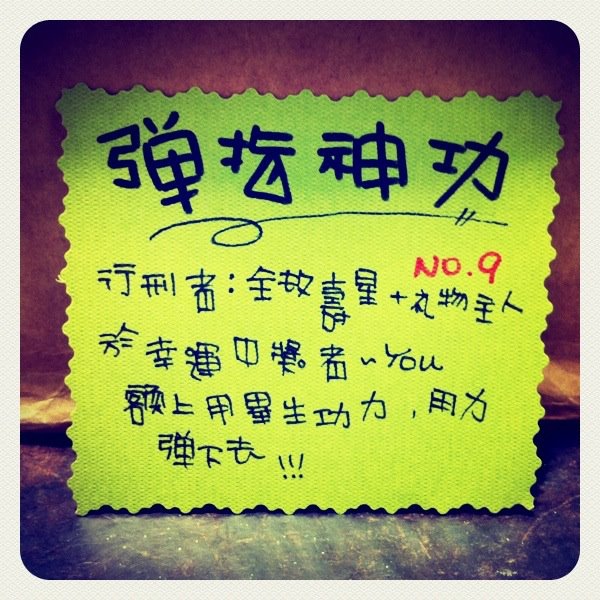 弹指神功
NO.9
行刑者：全故壽星+礼物主人
於幸運中獎者~YOU
額上用畢生功力，用力
弹下去!!!